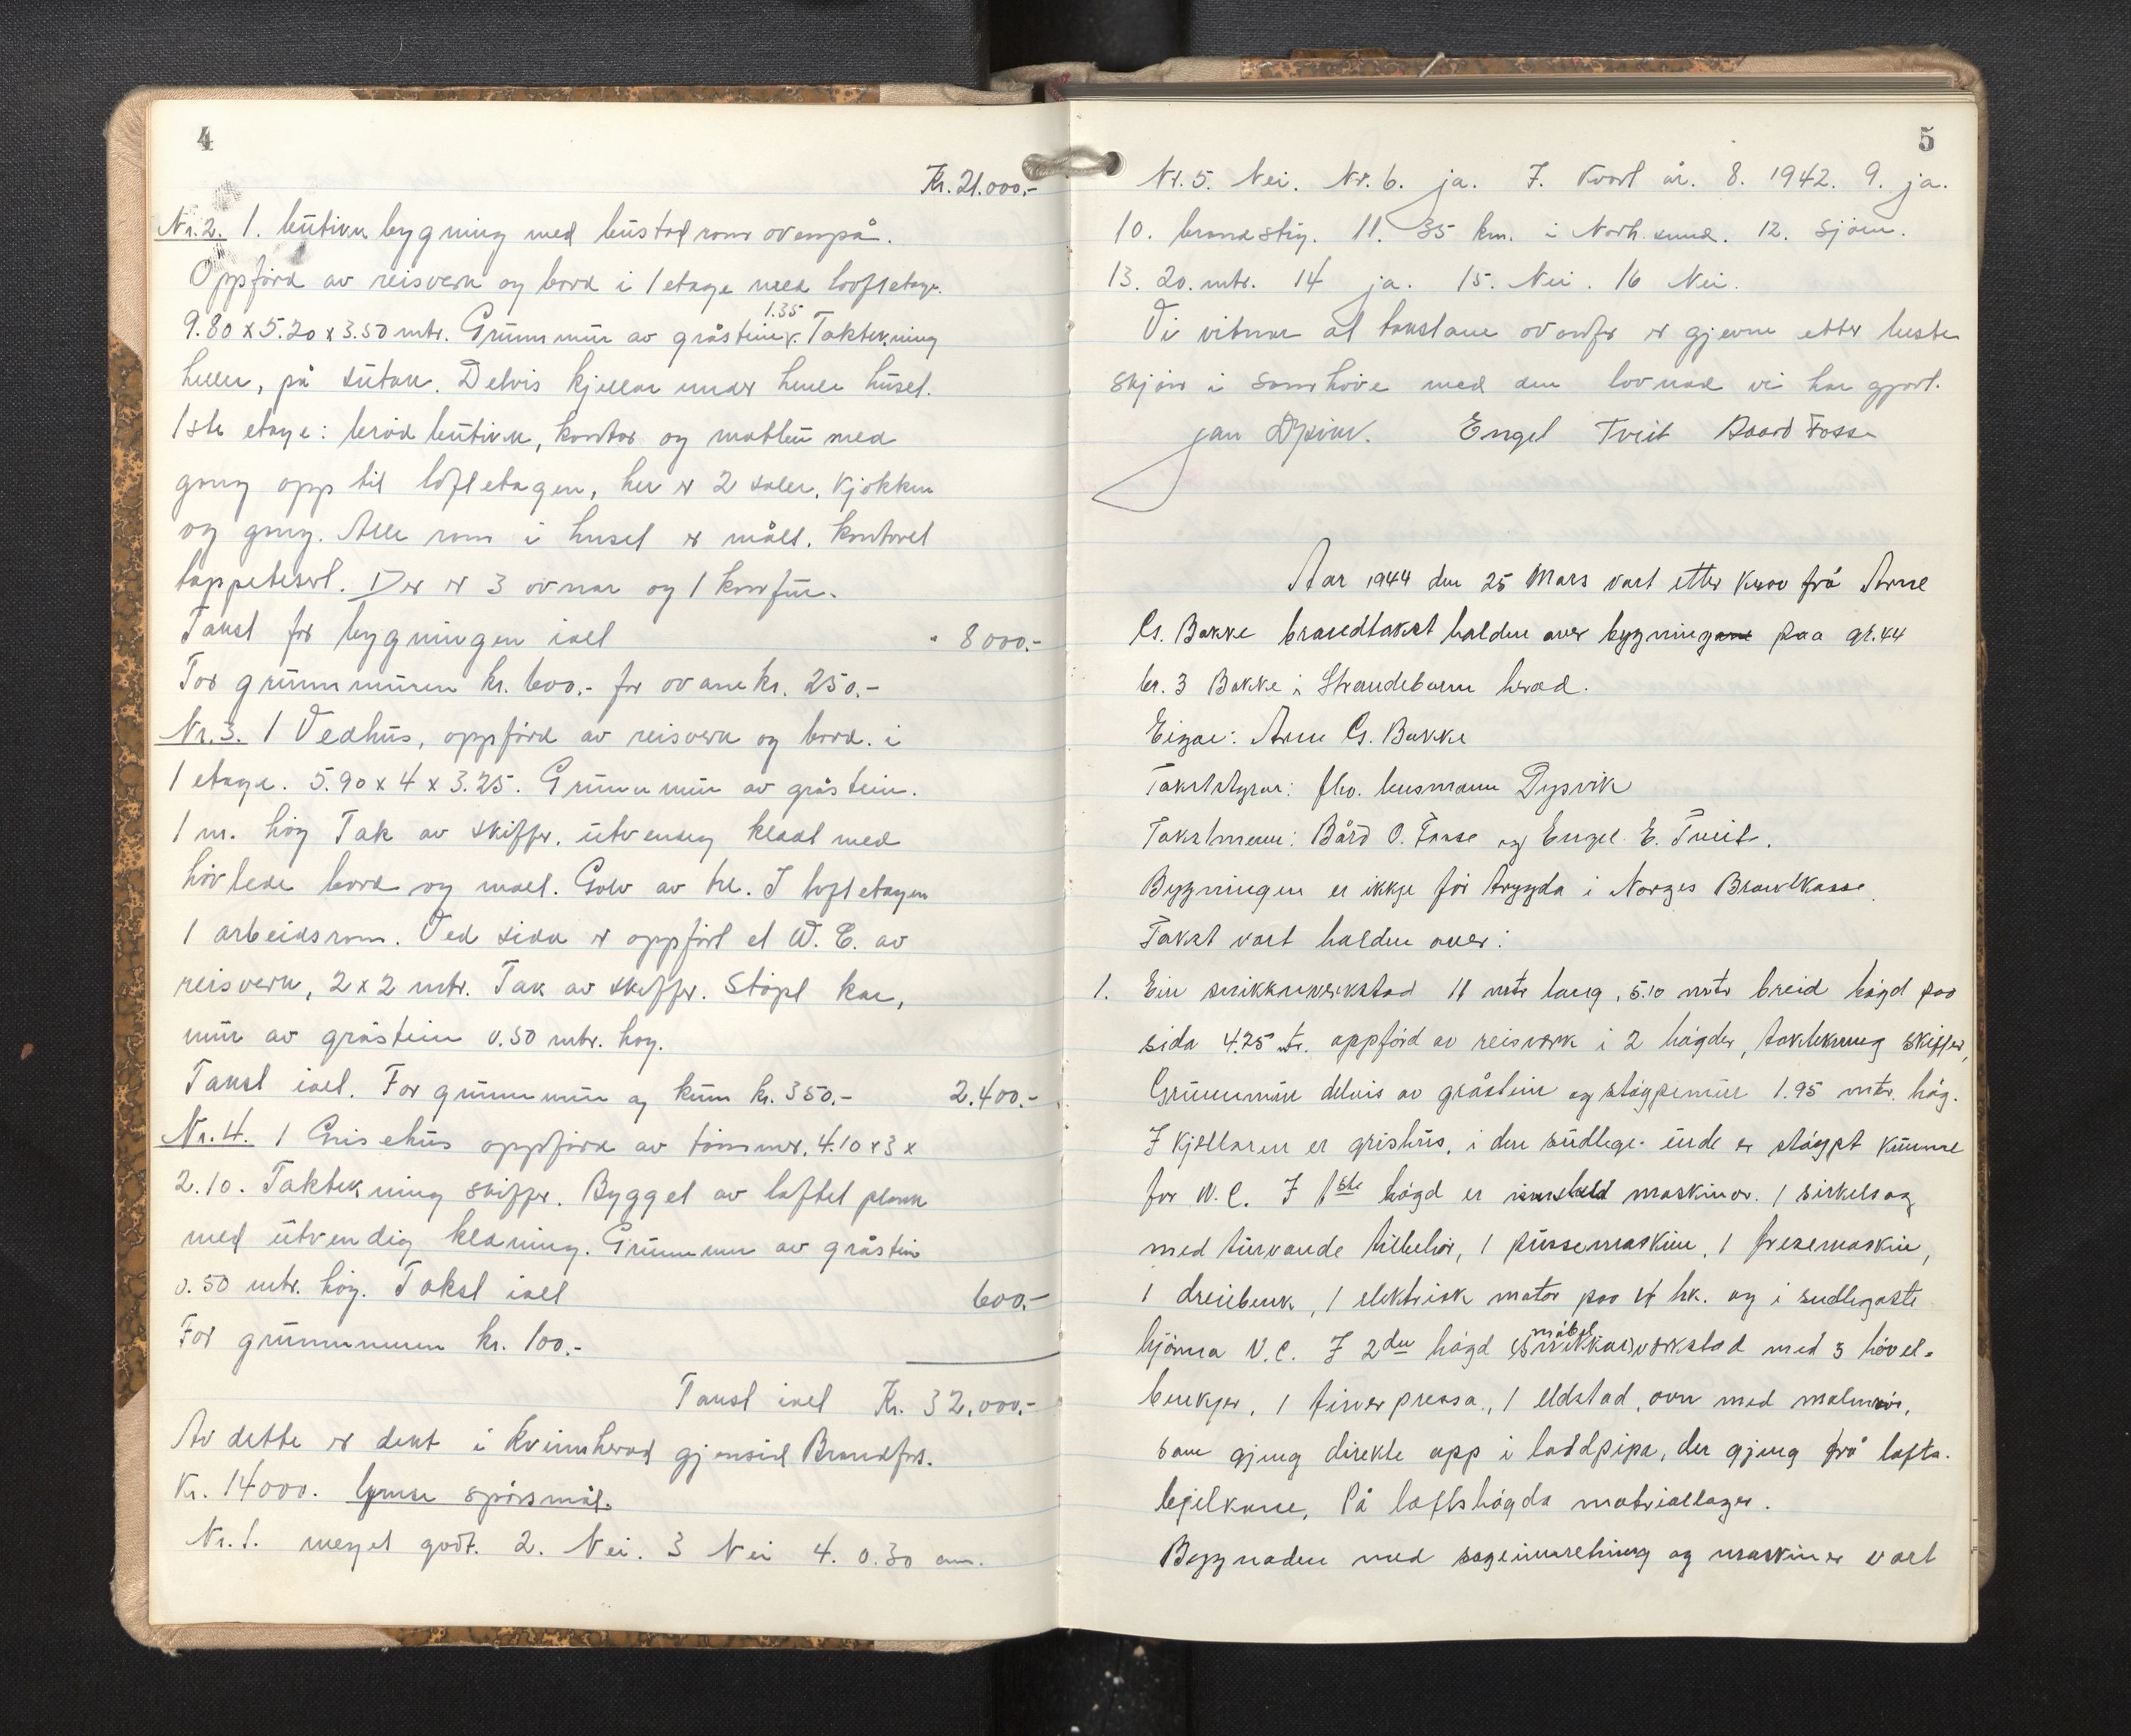 4
Kr. 21.000,-
Nr. 2. 1. butikk bygning med bustad rom ovenpå.
Oppförd av reisverk og bord i 1 etage med loftetage.
1.35
9.80 x 5.20 x 3.50 mtr. Grunnmur av gråstein. Taktekning
heller, på sutak. Delvis kjellar under heile huset.
1ste etage: bröd butikk, kontor og matbu med
gang opp til loftetagen, her er 2 saler, kjökken
og gang. Alle rom i huset er målt. Kontoret
tappetsert. Der er 3 ovnar og 1 komfür.
Takst for bygningen ialt " 8000.-
For grunnmuren kr. 600.- for ovane kr. 250.-
Nr. 3. 1 Vedhüs, oppförd av reisverk og bord. i
1 etage. 5.90 x 4 x 3.25. Grunnmür av gråstein.
1 m. hög Tak av skiffer. ütvendig kledt med
hövlede bord og malt. Golv av tre. I loftetagen
1 arbeidsrom. Ved sida er oppfört et W. C. av
reisverk, 2 x 2 mtr. Tak av skiffer. Stöpt kar,
mür av gråstein 0.50 mtr. høg.
Takst ialt. For grunnmür og kum kr. 350.- 2.400.-
Nr. 4. 1 Grisehüs oppförd av tömmer. 4.10 x 3 x
2.10. Taktekning skiffer. Bygget av loftet plank
med ütvendig kledning. Grunnmur av gråstein
0.50 mtr. høg. Takst ialt 600.-
For grunnmuren kr. 100.-
Takst ialt Kr. 32.000.-
Av dette er dekt i Kvinnherad gjensid Brandfors.
Kr. 14000. Ymse spörsmål.
Nr. 1. meget godt. 2. Nei. 3 Nei 4. 0.30 cm.
5
Nr. 5. Nei. Nr. 6. ja. 7. Kvart år. 8. 1942. 9. ja.
10. brandstig. 11. 35 km. i Norh.sund. 12. Sjöen.
13. 20. mtr. 14 ja. 15. Nei. 16 Nei.
Vi vitnar at takstane ovanfor er gjevne etter beste
skjön i samhöve med den lovnad vi har gjort.
Jan Dysvik. Engel Tveit Baard Fosse
Aar 1944 den 25 Mars vart etter krav frå Arne
Cs. Bakke brandtakst halden over bygningane paa gr. 44
br. 3 Bakke i Strandebarm herad.
Eigar: Arne Cs. Bakke
Takststyrar: fhv. lensmann Dysvik
Takstmenn: Bård O. Fosse og Engel E. Tveit.
Bygningen er ikkje för trygda i Norges Brandkasse.
Takst vart halden over:
1. Ein snikkarverkstad 11 mtr lang, 5.10 mtr breid högd paa
sida 4.25 mtr. oppförd av reisverk i 2 högder, taktekning skiffer,
Grunnmür delvis av gråstein og støypemür 1.95 mtr. hög.
I kjellaren er grishüs, i den südlege ende er støypt kumme
for W. C. I 1ste högd er innstald maskiner. 1 sirkelsag
med turvande tilbehör, 1 püssemaskine, 1 fresemaskin,
1 dreiebenk, 1 elektrisk motor paa 4 hk. og i sudlegaste
möbel
hjörna W.C. I 2den högd (snikkar)verkstad med 3 hövel-
benkjer, 1 finer pressa, 1 eldstad, ovn med malmrör,
som gjeng direkte opp i laddpipa, der gjeng frå lofts-
bjelkane. På loftshögda matriallager.
Bygnaden med sageinnretning og maskiner vart